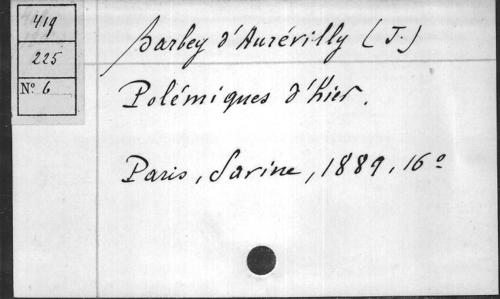 419
225
Nº 6
Barbey d'Aurévilly (J.)
Polémiques d'hier.
Paris, Savine, 1889, 16º